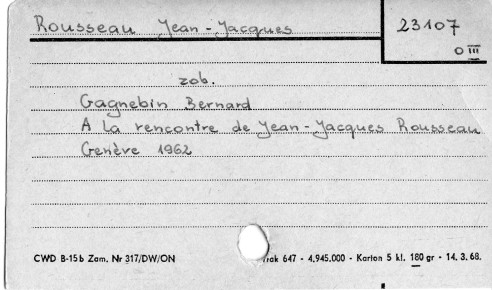 Rousseau Jean-Jacques
23107
O III
zob.
Gagnebin Bernard
A la rencontre de Jean-Jacques Rousseau
Genève 1962
CWD B-15b Zam. Nr 317/DW/ON rak 647 - 4.945.000 - Karton 5 kl. 180 gr - 14. 3. 68.